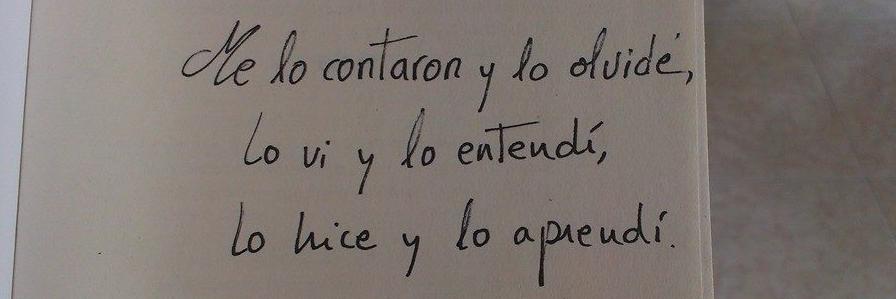 Me lo contaron y lo olvidé,
Lo vi y lo entendí,
Lo hice y lo aprendí.